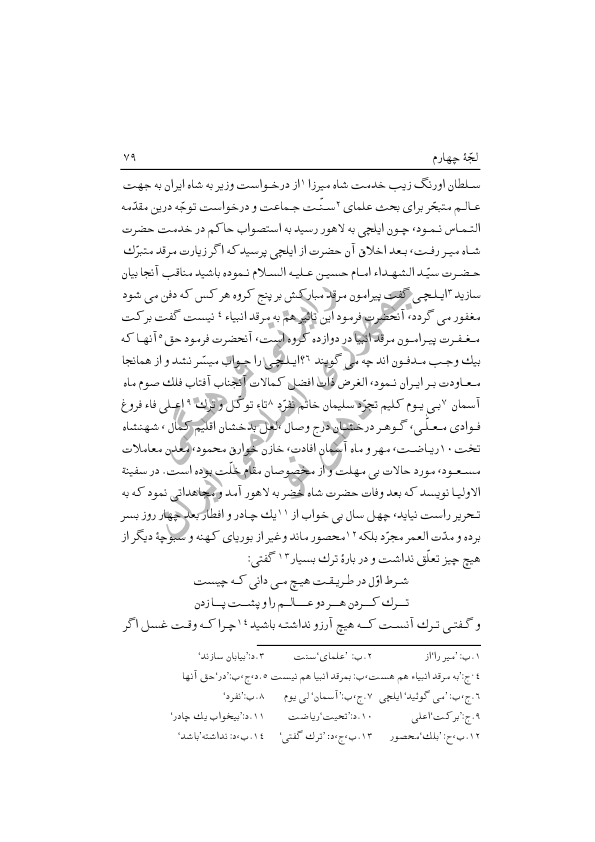 لجّهٔ چهارم ۷۹
سـلطان اورنگ زیب خدمت شاه میرزا ۱از درخـواست وزیر به شاه ایران به جهت
عـالـم متبحّر برای بحث علمای ۲سـنّـت جـماعت و درخواست توجّه درین مقدّمه
التـماس نـمود، چـون ایلچی به لاهور رسید به استصواب حاکم در خدمت حضرت
شـاه میـر رفـت، بـعد اخلاق آن حضرت از ایلچی پرسید که اگر زیارت مرقد متبرّک
حـضـرت سیّـد الشهـداء امـام حسیـن عـلیـه السـلام نـموده باشید مناقب آنجا بیان
سازید ۳ایـلـچـی گفت پیرامون مرقد مبارکـش بر پنج کروه هر کس که دفن می شود
مغفور می گردد، آنحضرت فرمود این تاثیر هم به مرقد انبیاء ۴ نیست گفت برکت
مـغـفـرت پیـرامـون مرقد انبیا در دوازده کروه است، آنحضرت فرمود حق ۵آنهـا که
بیک وجـب مـدفـون اند چه می گویند ۶؟ایـلـچـی را جـواب میسّر نشد و از همانجا
مـعـاودت بـر ایـران نمود، الغرض ذات افضل کمالات آنجناب آفتاب فلک صوم ماه
آسمان ۷بـی یـوم کلیم تجرّد سلیمان خاتم تفرّد ۸تاء توکّـل و ترک ۹اعـلی فاء فروغ
فـوادی مـعـلّـی، گـوهـر درخشـان درج وصال ،لعل بدخشان اقلیم کمال ، شهنشاه
تخت ۱۰ریـاضـت، مهر و ماه آسمان افادت، خازن خوارق محمود، معدن معاملات
مسـعـود، مورد حالات بی مهلت و از مخصوصان مقام خلّت بوده است. در سفینة
الاولیـا نویسد که بعد وفات حضرت شاه خضر به لاهور آمد و مجاهداتی نمود که به
تـحریر راست نیاید، چهل سال بی خواب از ۱۱یک چـادر و افطار بعد چهار روز بسر
برده و مدّت العمر مجرّد بلکه ۱۲محصور ماند و غیر از بوریای کهنه و سبوچهٔ دیگر از
هیچ چیز تعلّق نداشت و در بارهٔ ترک بسیار ۱۳ گفتی:
شـرط اوّل در طـریـقـت هیـچ مـی دانی کـه چیست
تـــرک کـــردن هـــر دو عـــالـــم را و پـشـت پـا زدن
و گـفـتـی تـرک آنسـت کـه هیچ آرزو نداشتـه باشید ۱۴چـرا کـه وقت غسل اگر
۱.ب: 'میر را'از ۲.ب: 'علمای'سنت ۳.د:'بیابان سازند'
۴.ج:'به مرقد انبیاء هم هست،ب: بمرقد انبیا هم نیست ۵.د،ج،ب:'در'حق آنها
۶.ج،ب: 'می گوئید' ایلچی ۷.ج،ب:'آسمان' لی یوم ۸.ب:'تفرد'
۹.ج:'برکت'اعلی ۱۰.د:'تحیت'ریاضت ۱۱.د:'بیخواب یک چادر'
۱۲.ب،ج: 'بلک'محصور ۱۳.ب،ج،د: 'ترک گفتی' ۱۴.ب،د: نداشته'باشد'